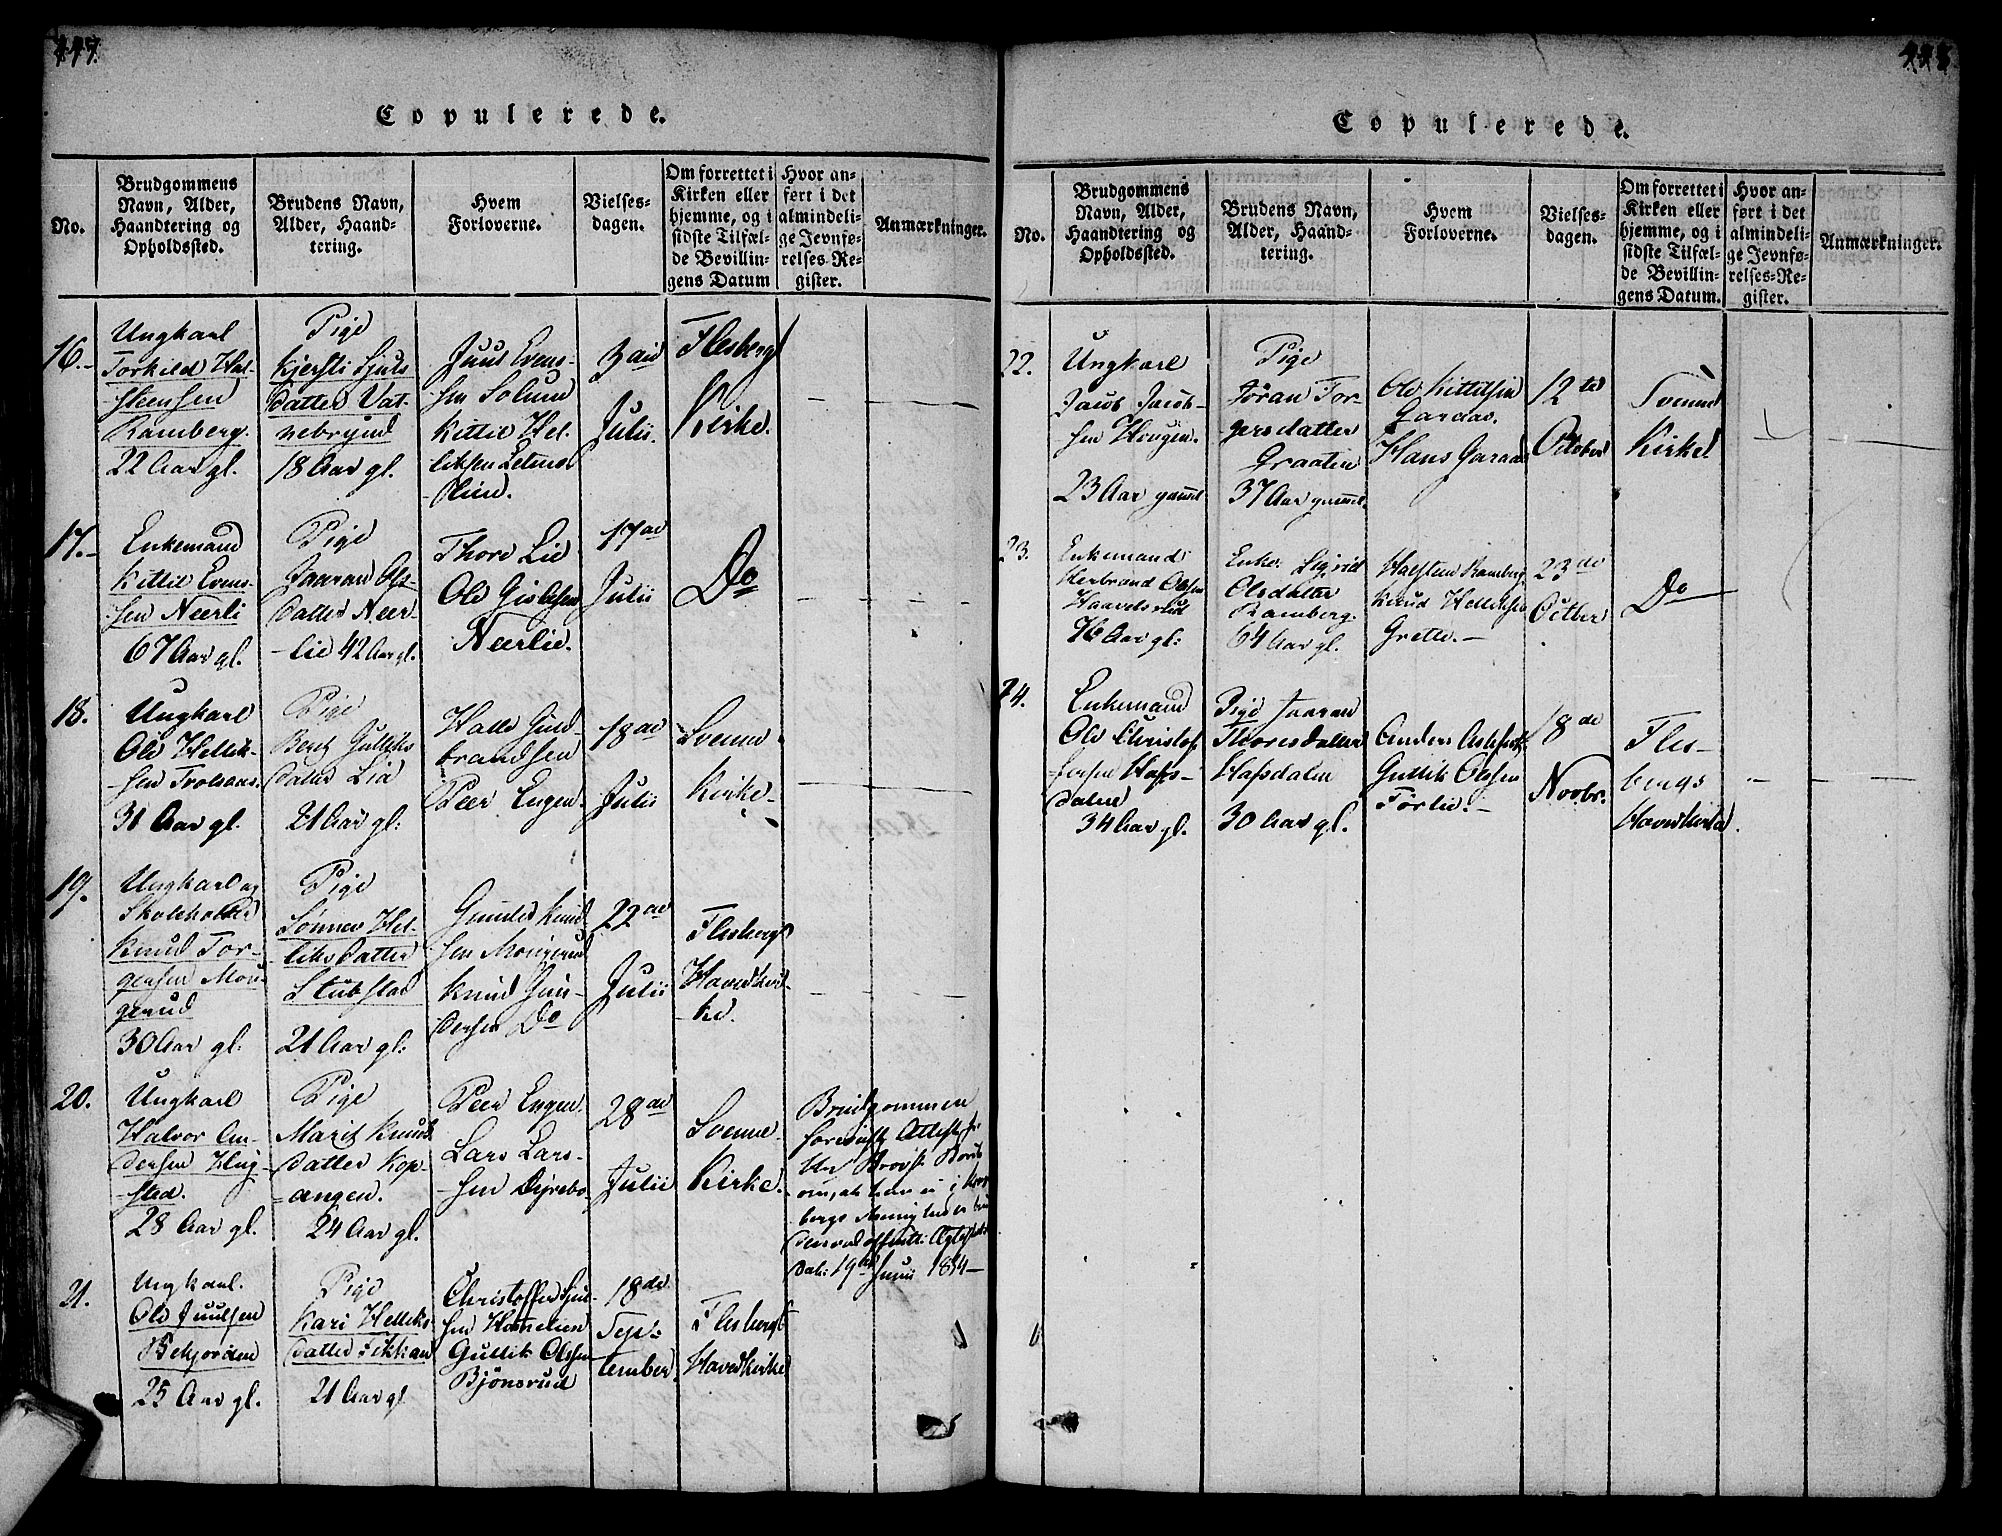 447.
Copulerede.
No.
Brudgommens
Navn, Alder,
Haandtering og
Opholdssted.
Brudens Navn,
Alder, Haand-
tering.
Hvem
Forloverne.
Vielses-
dagen.
Om forrettet i
Kirken eller
hjemme, og i
sidste Tilfæl-
de Bevillin-
gens Datum
Hvor an-
ført i det
almindeli-
ge Jevnfø-
relses-Re-
gister.
Anmærkninger.
16.-
Ungkarl
Torkild Hal-
steensen
Ramberg.
22 Aar gl.
Pige
Kjersti Sjuls
datter Vat-
nebrynd
18 Aar gl.
Juul Evens-
sen Solum
Kittil Hel-
liksen
3die
Julii.
Flesberg
Kirke.
17.-
Enkemand
Kittil Evens-
sen Neerli
67 Aar gl.
Pige
Jaaran Ols
datter Neer-
-lie 42 Aar gl.
Thore Lie
Ole Gislesen
Neerlie.
17de
Julii
Do
18.
Ungkarl
Ole Hellik-
sen Trolsaas.
31 Aar gl.
Pige
Berit Gulliks
datter Lia
21 Aar gl:
Halle Gud-
brandsen
Peer Engen.
18de
Julii
Svenne
Kirke.
19.
Ungkarl og
Skoleholder
Knud Tor-
gersen Mou-
gerud
30 Aar gl.
Pige
Sønnev Hel-
liksdatter
Stubstad
21 Aar gl:
Gunder Knud
sen Mougerud
Knud Gun-
dersen Do
22de
Julii
Flesbergs
Hovedkir-
ke.
20.
Ungkarl
Halvor An-
dersen Hug-
-sted.
28 Aar gl.
Pige
Marit Knuds
datter Kop-
-angen.
24 Aar gl.
Peer Engen.
Lars Lars-
-sen Dyrebo.
28de
Julii
Svenne
Kirke.
Brudgommen
foreviist Attest fr
om, at han ei i Kongs
bergs Menighed er
dat: 19de Junii 1814-
21.
Ungkarl.
Ole Juulsen
Bekjorden
25 Aar gl.
Pige
Kari Helliks
datter Fekkan
21 Aar gl.
Christoffer Sjul-
sen
Gullik Olsen
Bjönsrud
18de
Sep-
tember.
Flesbergs
Hovedkirke
Copulerede.
No.
Brudgommens
Navn, Alder,
Haandtering og
Opholdssted.
Brudens Navn,
Alder, Haand-
tering.
Hvem
Forloverne.
Vielses-
dagen.
Om forrettet i
Kirken eller
hjemme, og i
sidste Tilfæl-
de Bevillin-
gens Datum.
Hvor an-
ført i det
almindeli-
ge Jevnfø-
relses-Re-
gister.
Anmærkninger.
22.
Ungkarl
Jacob Jacob-
sen Hougen.
23 Aar gammel
Pige
Jöran Tor-
gersdatter
Graaten
37 Aar gammel.
Ole Kittilsen
Garaas.
Hans Garaas
12te
October
Svenne
Kirke.
23.
Enkemand
Herbrand Olsen
Haavelsrud
76 Aar gl:
Enke Sigrid
Olsdatter
Ramberg.
64 Aar gl.
Halsten Ramberg.
Knud Helliksen
Grette.-
23de
Octber
Do
24.
Enkemand
Ole Christof-
fersen Hafs-
dalen
34 Aar gl.
Pige Jaaran
Thoresdatter
Hafsdalen
30 Aar gl.
Anders
Gullik Olsen
Førlie.-
18de
Novbr.
Fles-
bergs
Hovedkirke.